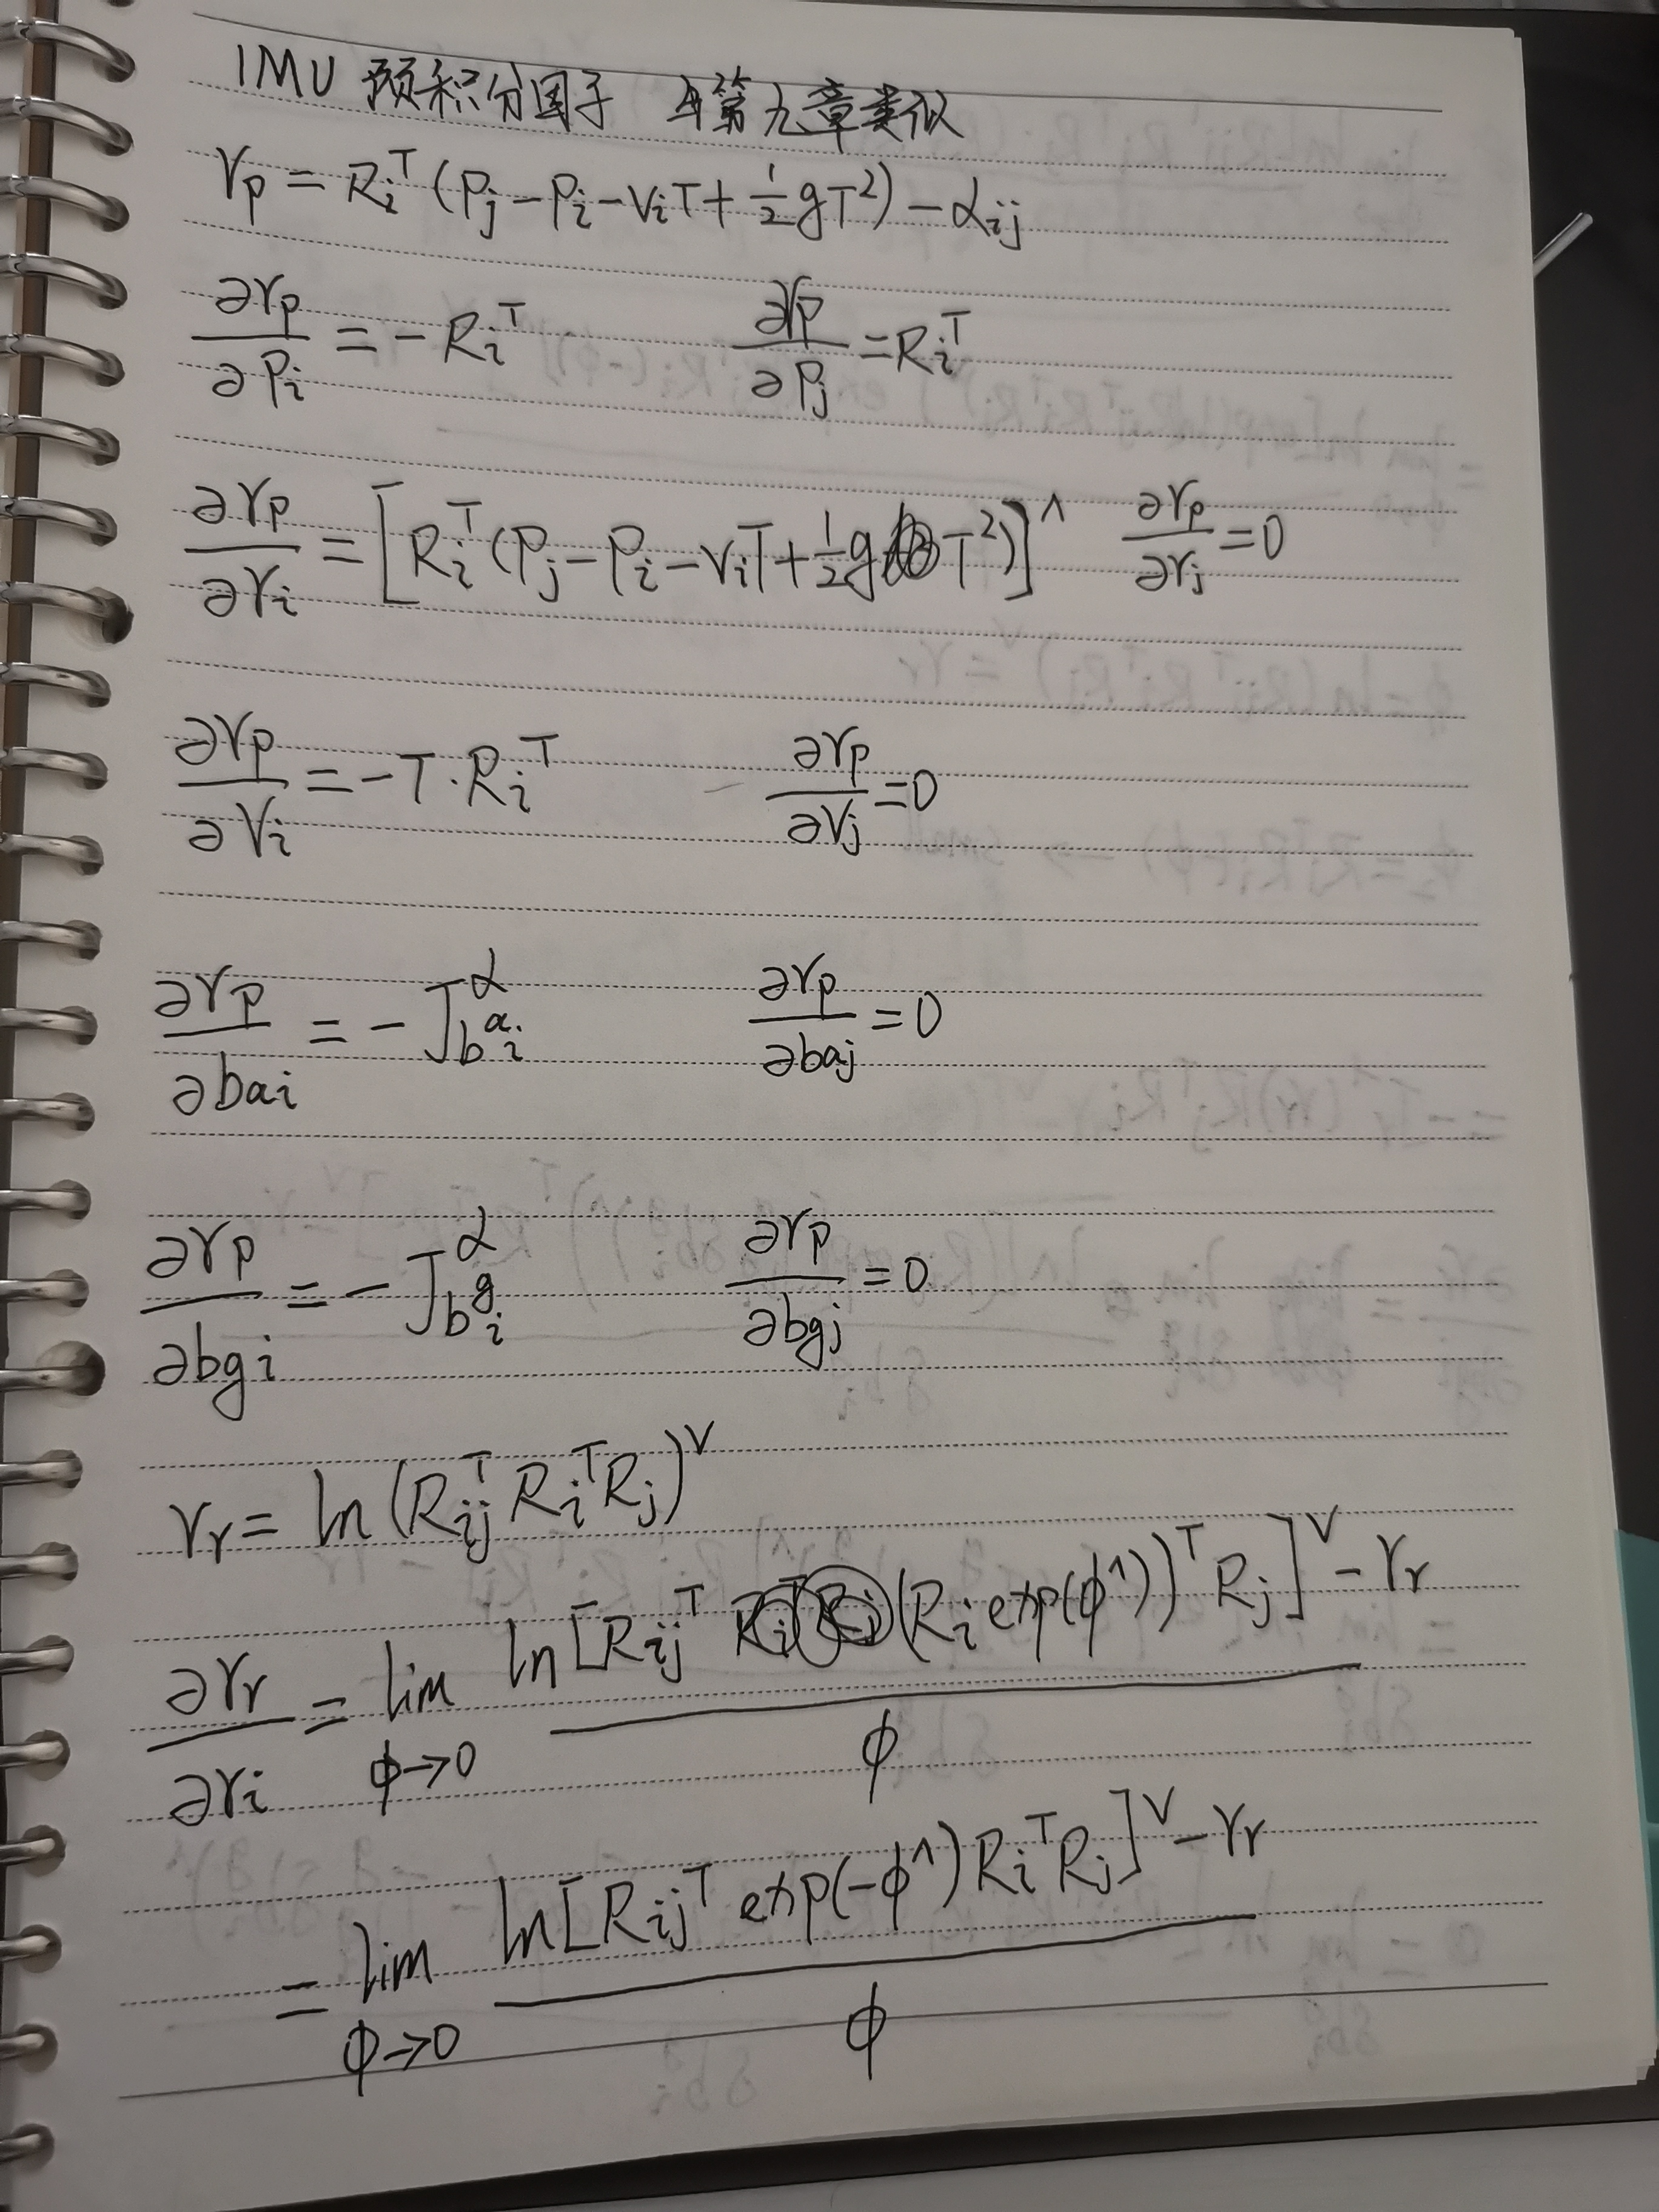 IMU 预积分因子 与第九章类似
r_p = R_i^T (P_j - P_i - V_i T + \frac{1}{2} g T^2) - α_{ij}
\frac{∂r_p}{∂P_i} = -R_i^T    \frac{∂r_p}{∂P_j} = R_i^T
\frac{∂r_p}{∂r_i} = [R_i^T (P_j - P_i - V_i T + \frac{1}{2} g T^2)]^∧    \frac{∂r_p}{∂r_j} = 0
\frac{∂r_p}{∂V_i} = -T · R_i^T    \frac{∂r_p}{∂V_j} = 0
\frac{∂r_p}{∂bai} = -J^α_{b^a_i}    \frac{∂r_p}{∂baj} = 0
\frac{∂r_p}{∂bgi} = -J^α_{b^g_i}    \frac{∂r_p}{∂bgj} = 0
r_r = ln (R_{ij}^T R_i^T R_j)^∨
\frac{∂r_r}{∂r_i} = \lim_{ϕ→0} \frac{ln [R_{ij}^T (R_i exp(ϕ^∧))^T R_j]^∨ - r_r}{ϕ}
= \lim_{ϕ→0} \frac{ln [R_{ij}^T exp(-ϕ^∧) R_i^T R_j]^∨ - r_r}{ϕ}